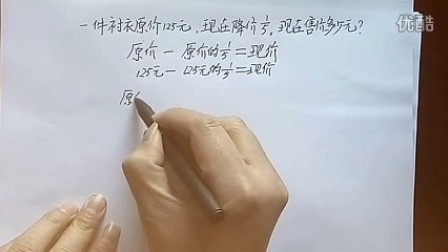 一件衬衣原价125元,现在降价1/5,现在售价多少元?
原价 - 原价的1/5=现价
125元 - 125元的1/5=现价
原
优酷